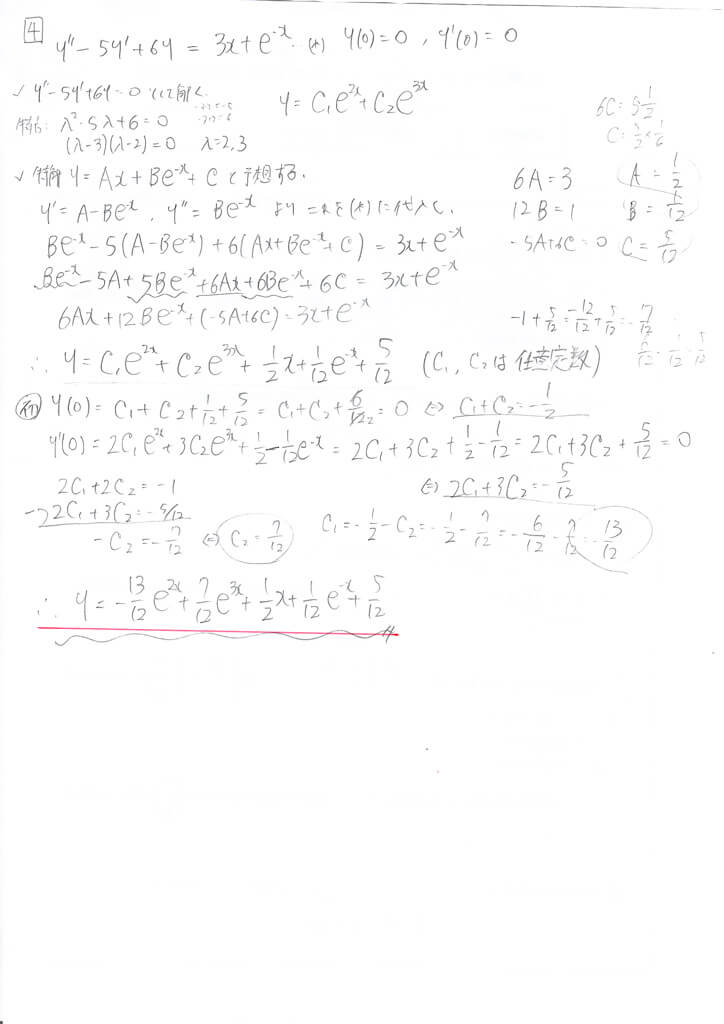 4 y''-5y'+6y = 3x+e^{-x} (*) y(0)=0, y'(0)=0
✓ y''-5y'+6y=0 について解く y = C₁e^{2x}+C₂e^{3x}
特方: λ²-5λ+6=0
(λ-3)(λ-2)=0 λ=2,3
6C=5·\frac{1}{2}
C=\frac{5}{2}×\frac{1}{6}
✓ 特解 y=Ax+Be^{-x}+C と予想する.
y'=A-Be^{-x}, y''=Be^{-x} より これを(*)に代入し,
Be^{-x}-5(A-Be^{-x})+6(Ax+Be^{-x}+C)=3x+e^{-x}
Be^{-x}-5A+5Be^{-x}+6Ax+6Be^{-x}+6C=3x+e^{-x}
6Ax+12Be^{-x}+(-5A+6C)=3x+e^{-x}
6A=3 A=\frac{1}{2}
12B=1 B=\frac{1}{12}
-5A+6C=0 C=\frac{5}{12}
-1+\frac{5}{12}=\frac{-12}{12}+\frac{5}{12}=-\frac{7}{12}
∴ y=C₁e^{2x}+C₂e^{3x}+\frac{1}{2}x+\frac{1}{12}e^{-x}+\frac{5}{12} (C₁, C₂は任意定数)
初 y(0)=C₁+C₂+\frac{1}{12}+\frac{5}{12}=C₁+C₂+\frac{6}{12}=0 ⇔ C₁+C₂=-\frac{1}{2}
y'(0)=2C₁e^{2x}+3C₂e^{3x}+\frac{1}{2}-\frac{1}{12}e^{-x}=2C₁+3C₂+\frac{1}{2}-\frac{1}{12}=2C₁+3C₂+\frac{5}{12}=0
⇔ 2C₁+3C₂=-\frac{5}{12}
2C₁+2C₂=-1
-)2C₁+3C₂=-5/12
-C₂=-\frac{7}{12} ⇔ C₂=\frac{7}{12} C₁=-\frac{1}{2}-C₂=-\frac{1}{2}-\frac{7}{12}=-\frac{6}{12}-\frac{7}{12}=-\frac{13}{12}
∴ y=-\frac{13}{12}e^{2x}+\frac{7}{12}e^{3x}+\frac{1}{2}x+\frac{1}{12}e^{-x}+\frac{5}{12}